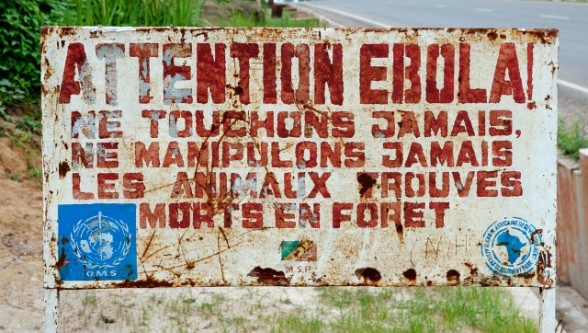 ATTENTION EBOLA!
NE TOUCHONS JAMAIS,
NE MANIPULONS JAMAIS
LES ANIMAUX TROUVES
MORTS EN FORET
O.M.S
M.S.P.